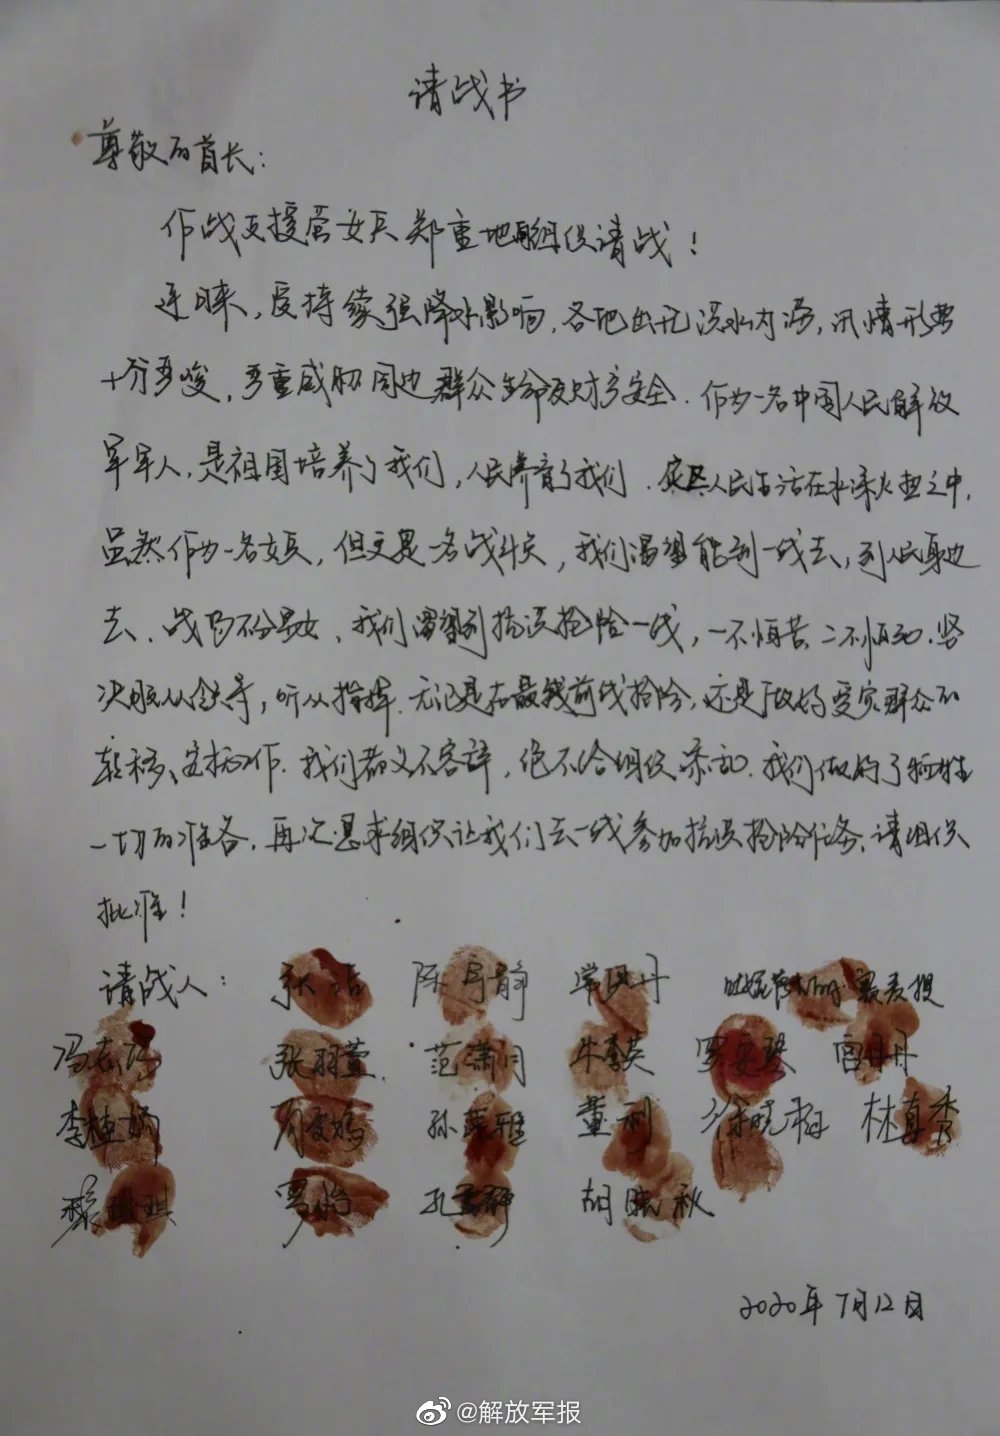 请战书
尊敬的首长：
作战支援营女兵郑重地向组织请战！
连日来，受持续强降水影响，各地出现洪水内涝，汛情形势
十分严峻，严重威胁周边群众生命及财产安全．作为一名中国人民解放
军军人，是祖国培养了我们，人民养育了我们．灾区人民生活在水深火热之中，
虽然作为一名女兵，但更是一名战斗员，我们渴望能到一线去，到人民身边
去．战场不分男女，我们渴望到抗洪抢险一线，一不怕苦二不怕死．坚
决服从领导，听从指挥．无论是在最前线抢险，还是做好受灾群众的
转移、安抚工作．我们都义不容辞，绝不给组织添乱．我们做好了牺牲
一切的准备，再次恳求组织让我们去一线参加抗洪抢险任务，请组织
批准！
请战人： 张洁 陈宇静 常丹丹
张羽萱 范潇月 牛春英 罗安琴 宫丹丹
李桂娇 孙萍雅 董利 徐晓梅 林真秀
罗怡 孔雪静 胡晓秋
2020年7月12日
@解放军报